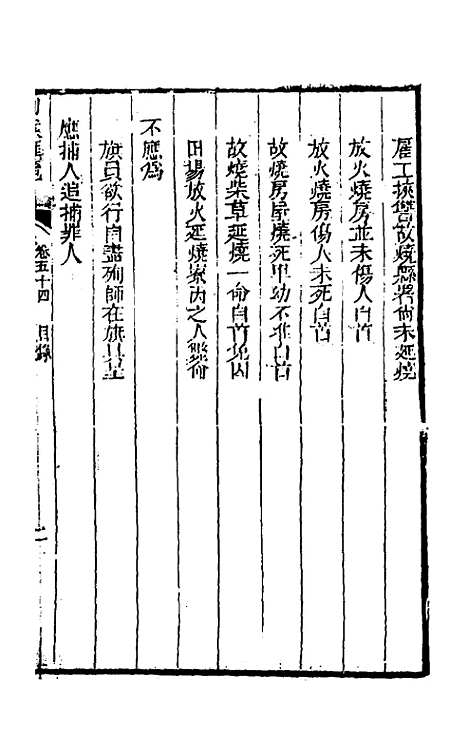 雇工挾讐故燒縣署尙未延燒
放火燒房並未傷人自首
放火燒房傷人未死自首
故燒房屋燒死卑幼不准自首
故燒柴草延燒一命自首免因
田場放火延燒寮内之人
不應爲
旗員欲行自盡殉師在旗
應捕人追捕罪人
卷五十四 目錄 二